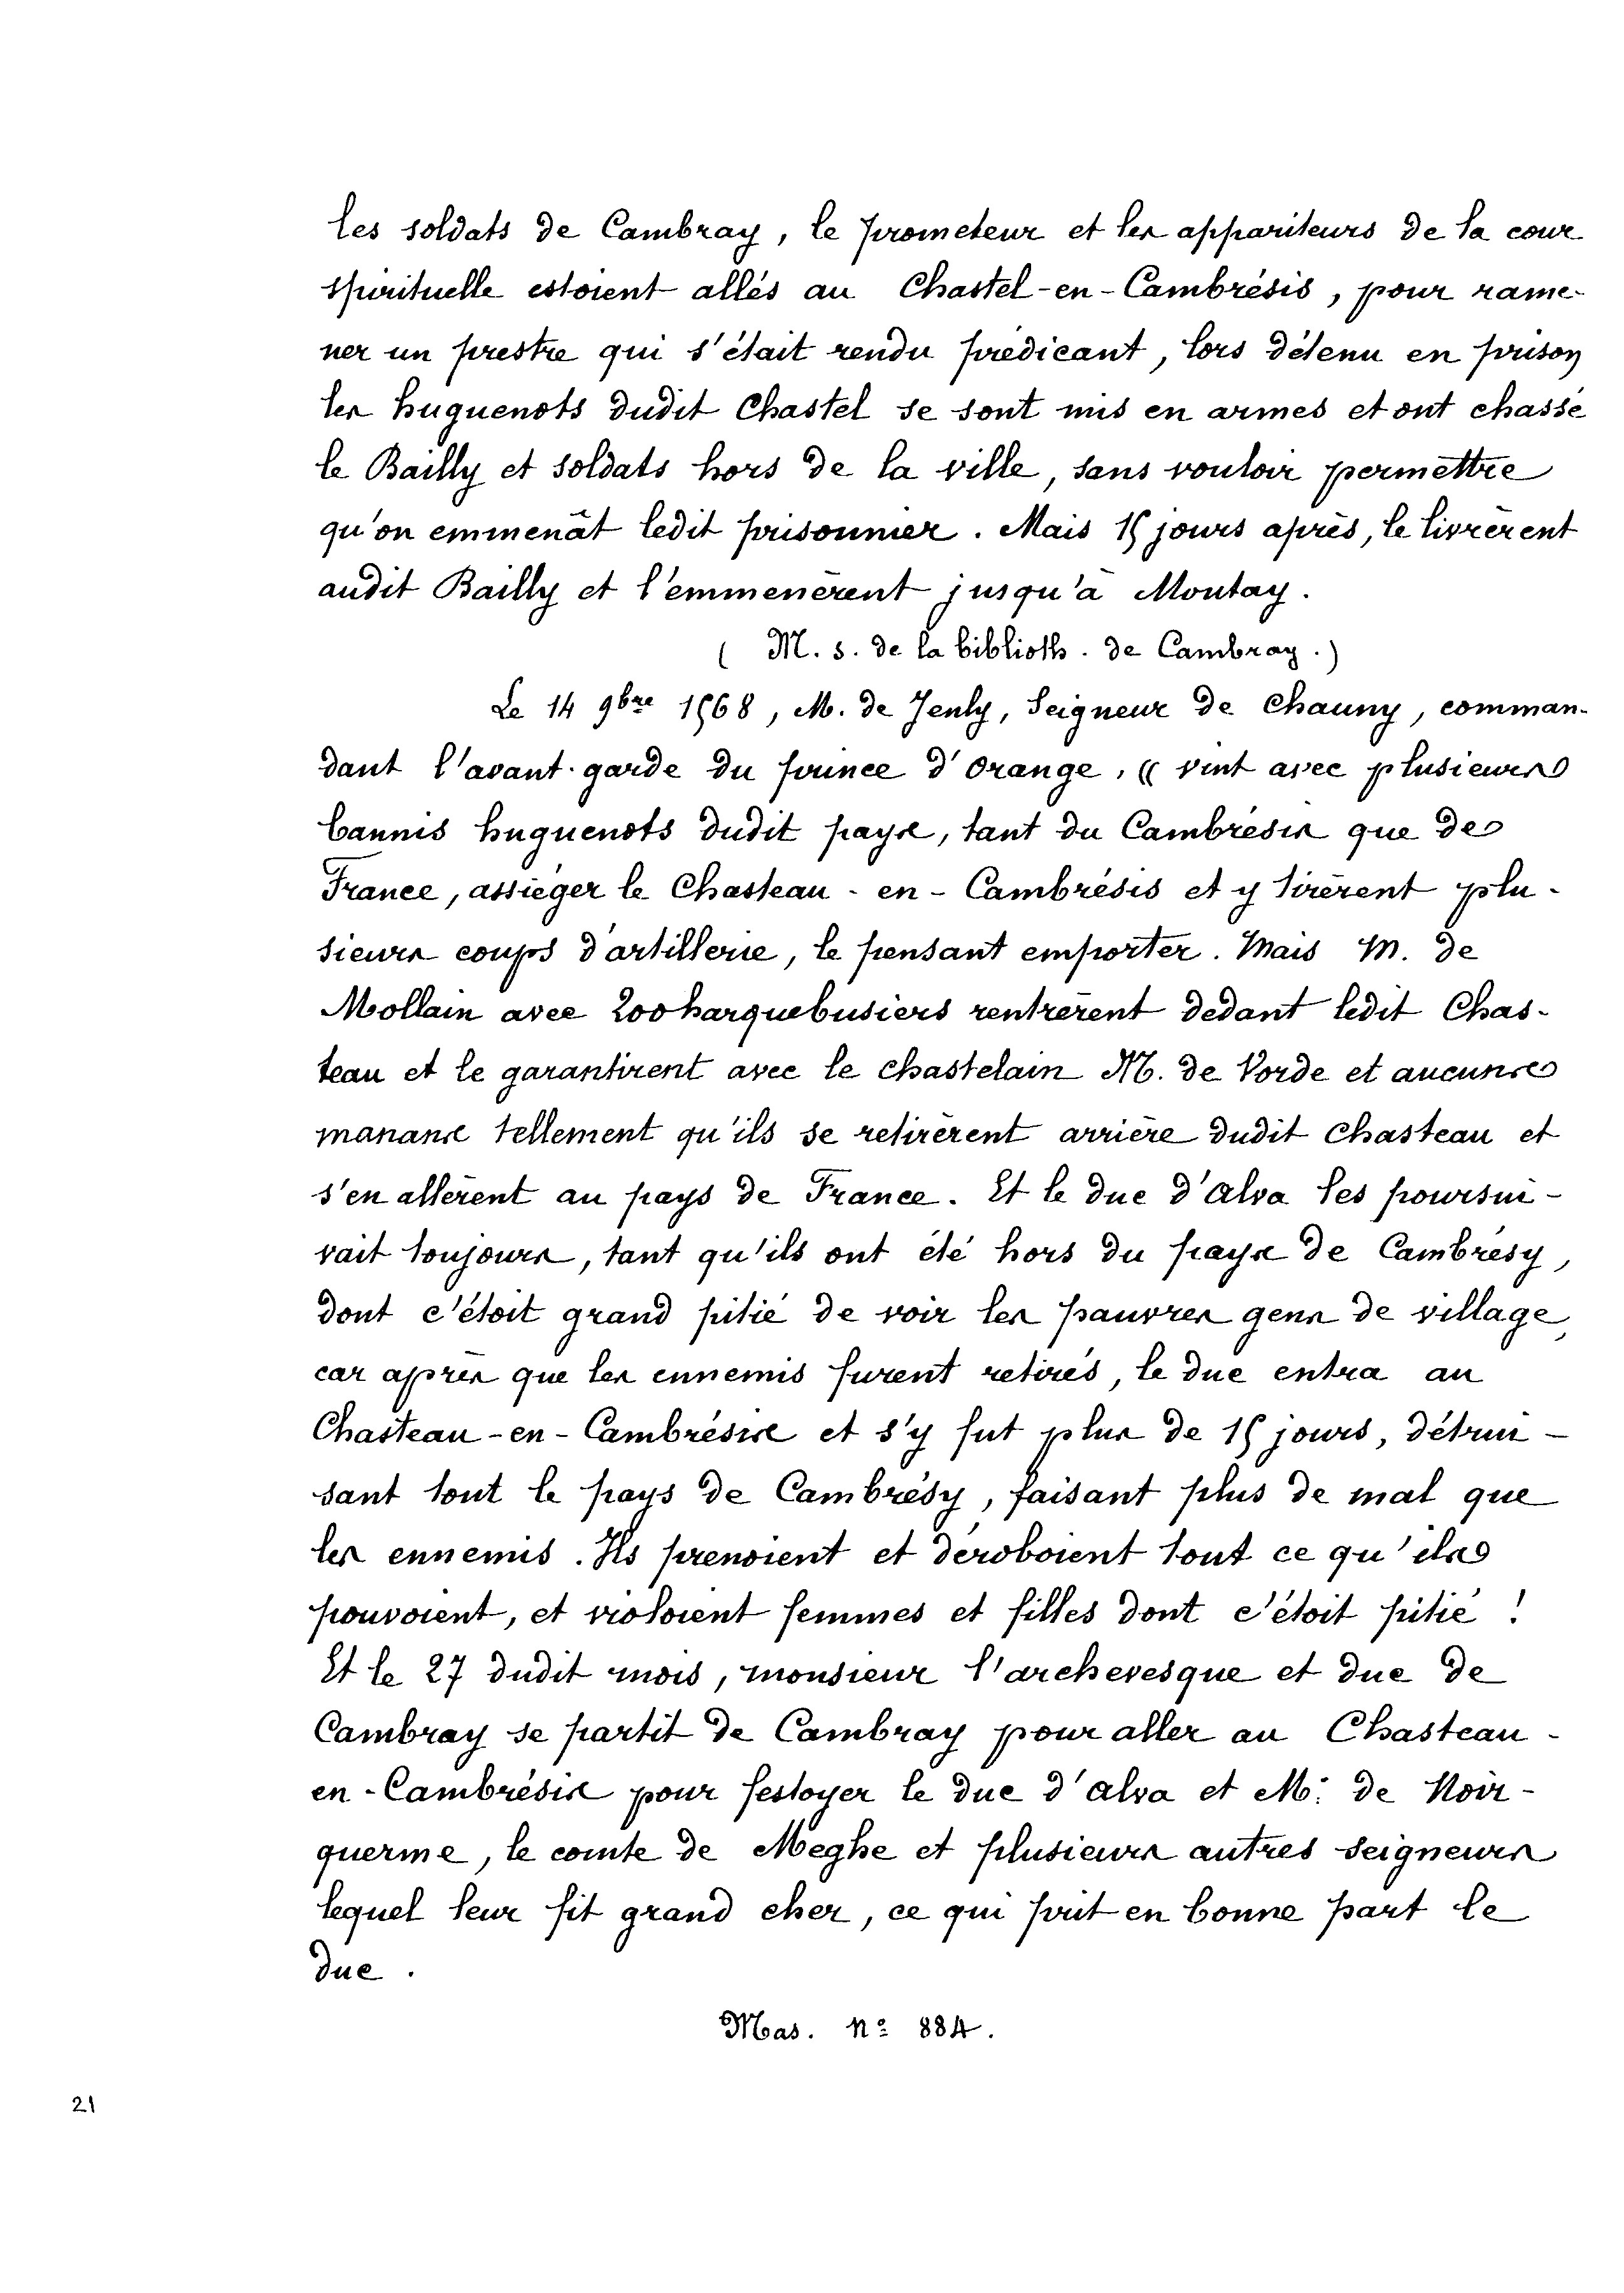 les soldats de Cambray, le prometeur et les appariteurs de la cour
spirituelle estoient allés au Chastel-en-Cambrésis, pour rame-
ner un prestre qui s'était rendu prédicant, lors détenu en prison
les huguenots dudit Chastel se sont mis en armes et ont chassé
le Bailly et soldats hors de la ville, sans vouloir permettre
qu'on emmenât ledit prisonnier. Mais 15 jours après, le livrèrent
audit Bailly et l'emmenèrent jusqu'à Montay.
( M. s. de la biblioth. de Cambray.)
Le 14 9bre 1568, M. de Jenly, Seigneur de Chauny, comman-
dant l'avant-garde du prince d'Orange, « vint avec plusieurs
bannis huguenots dudit pays, tant du Cambrésis que de
France, assiéger le Chasteau-en-Cambrésis et y tirèrent plu-
sieurs coups d'artillerie, le pensant emporter. Mais M. de
Mollain avec 200 harquebusiers rentrèrent dedant ledit Chas-
teau et le garantirent avec le chastelain M. de Vorde et aucuns
manans tellement qu'ils se retirèrent arrière dudit Chasteau et
s'en allèrent au pays de France. Et le duc d'Alva les poursui-
vait toujours, tant qu'ils ont été hors du pays de Cambrésy,
dont c'étoit grand pitié de voir les pauvres gens de village,
car après que les ennemis furent retirés, le duc entra au
Chasteau-en-Cambrésis et s'y fut plus de 15 jours, détrui-
sant tout le pays de Cambrésy, faisant plus de mal que
les ennemis. Ils prenoient et déroboient tout ce qu'ils
pouvoient, et violoient femmes et filles dont c'étoit pitié !
Et le 27 dudit mois, monsieur l'archevesque et duc de
Cambray se partit de Cambray pour aller au Chasteau-
en-Cambrésis pour festoyer le duc d'Alva et Mr de Noir-
querme, le comte de Meghe et plusieurs autres seigneurs
lequel leur fit grand cher, ce qui prit en bonne part le
duc.
Mas. n° 884.
21